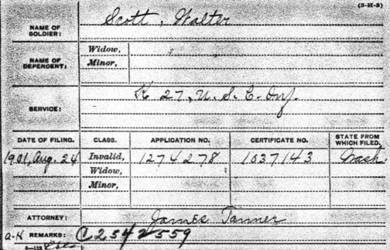 (3-H-3)
NAME OF SOLDIER: Scott, Walter
NAME OF DEPENDENT: Widow,
Minor,
SERVICE: K 27, U.S.C. Inf.
DATE OF FILING. CLASS. APPLICATION NO. CERTIFICATE NO. STATE FROM WHICH FILED.
1901, Aug. 24 Invalid, 1274278 1037143 Wash.
Widow,
Minor,
ATTORNEY: James Tanner
REMARKS: C 254 2559